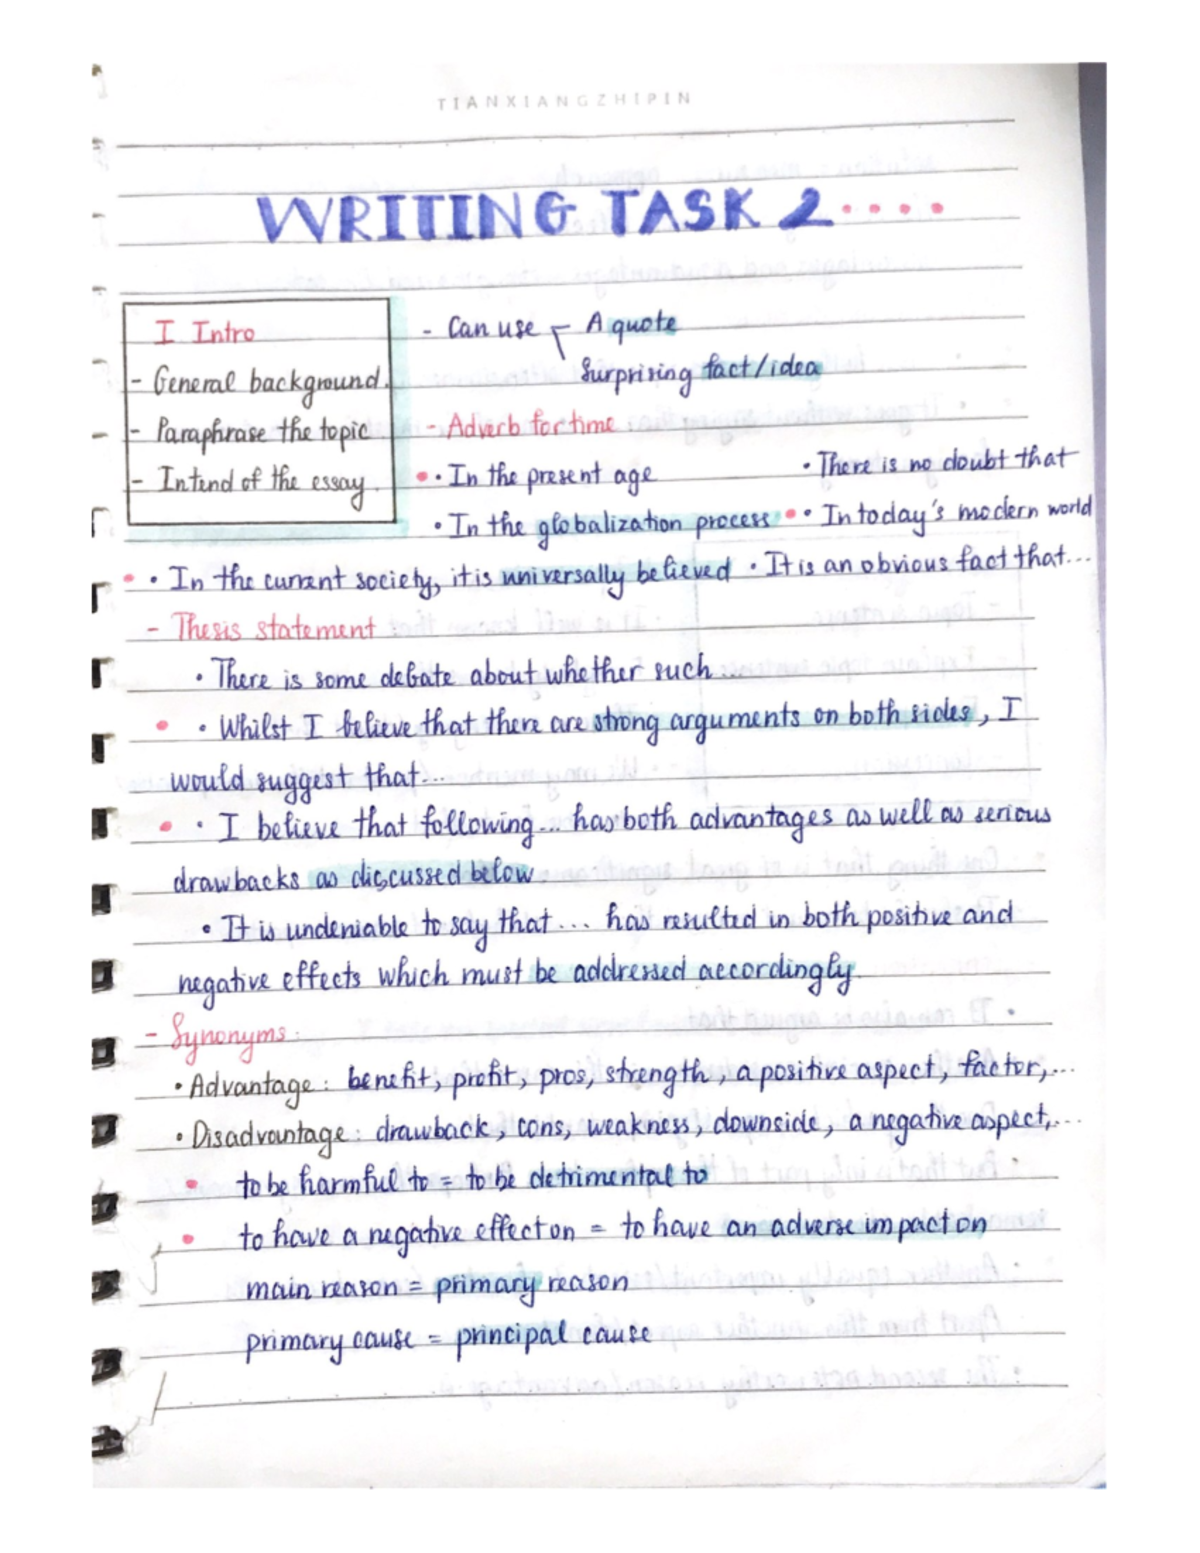 TIANXIANGZHIPIN
WRITING TASK 2....
I Intro
- General background.
- Paraphrase the topic
- Intend of the essay.
- Can use A quote
Surprising fact/idea
- Adverb for time
• In the present age
• There is no doubt that
• In the globalization process
• In today's modern world
• In the current society, it is universally believed • It is an obvious fact that...
- Thesis statement
• There is some debate about whether such...
• Whilst I believe that there are strong arguments on both sides, I
would suggest that...
• I believe that following... has both advantages as well as serious
drawbacks as discussed below
• It is undeniable to say that... has resulted in both positive and
negative effects which must be addressed accordingly.
- Synonyms:
• Advantage: benefit, profit, pros, strength, a positive aspect, factor,...
• Disadvantage: drawback, cons, weakness, downside, a negative aspect,...
to be harmful to = to be detrimental to
to have a negative effect on = to have an adverse impact on
main reason = primary reason
primary cause = principal cause